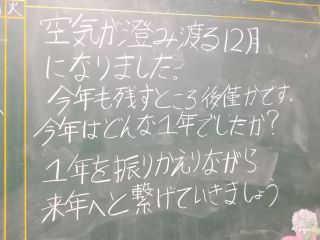 火
空気が澄み渡る12月
になりました。
今年も残すところ後僅かです。
今年はどんな1年でしたか?
1年を振りかえりながら
来年へと繋げていきましょう